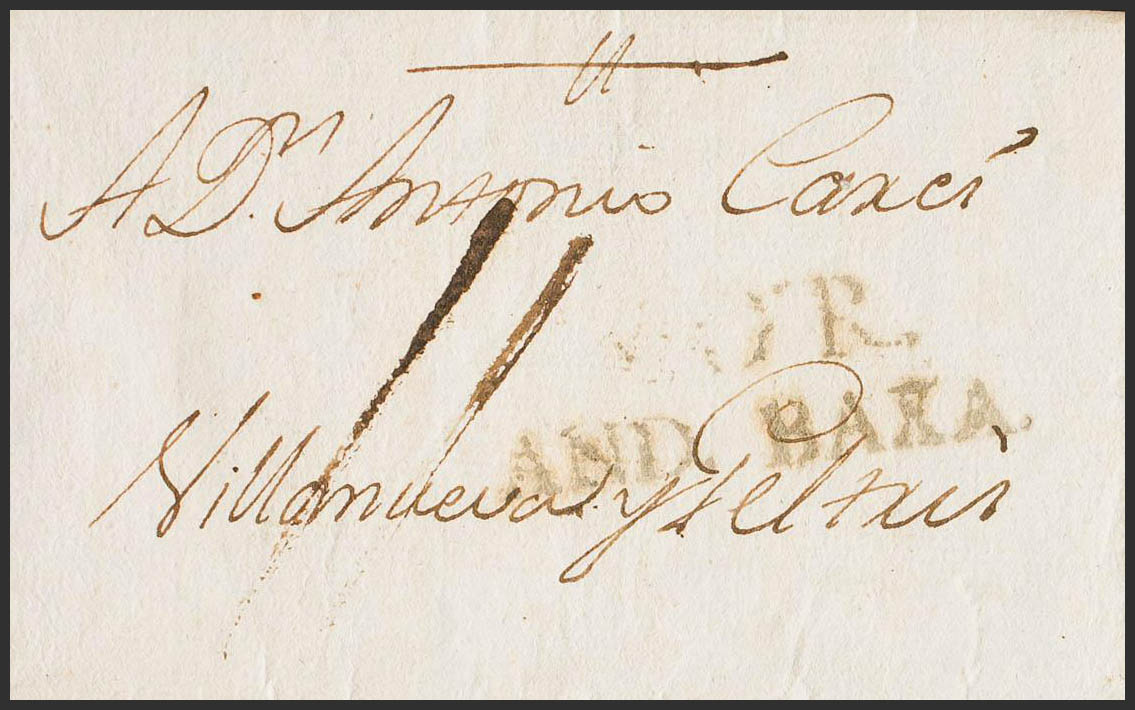 A Dn. Antonio Carcí
R.
AND. BAXA.
Villanueva y Geltrú